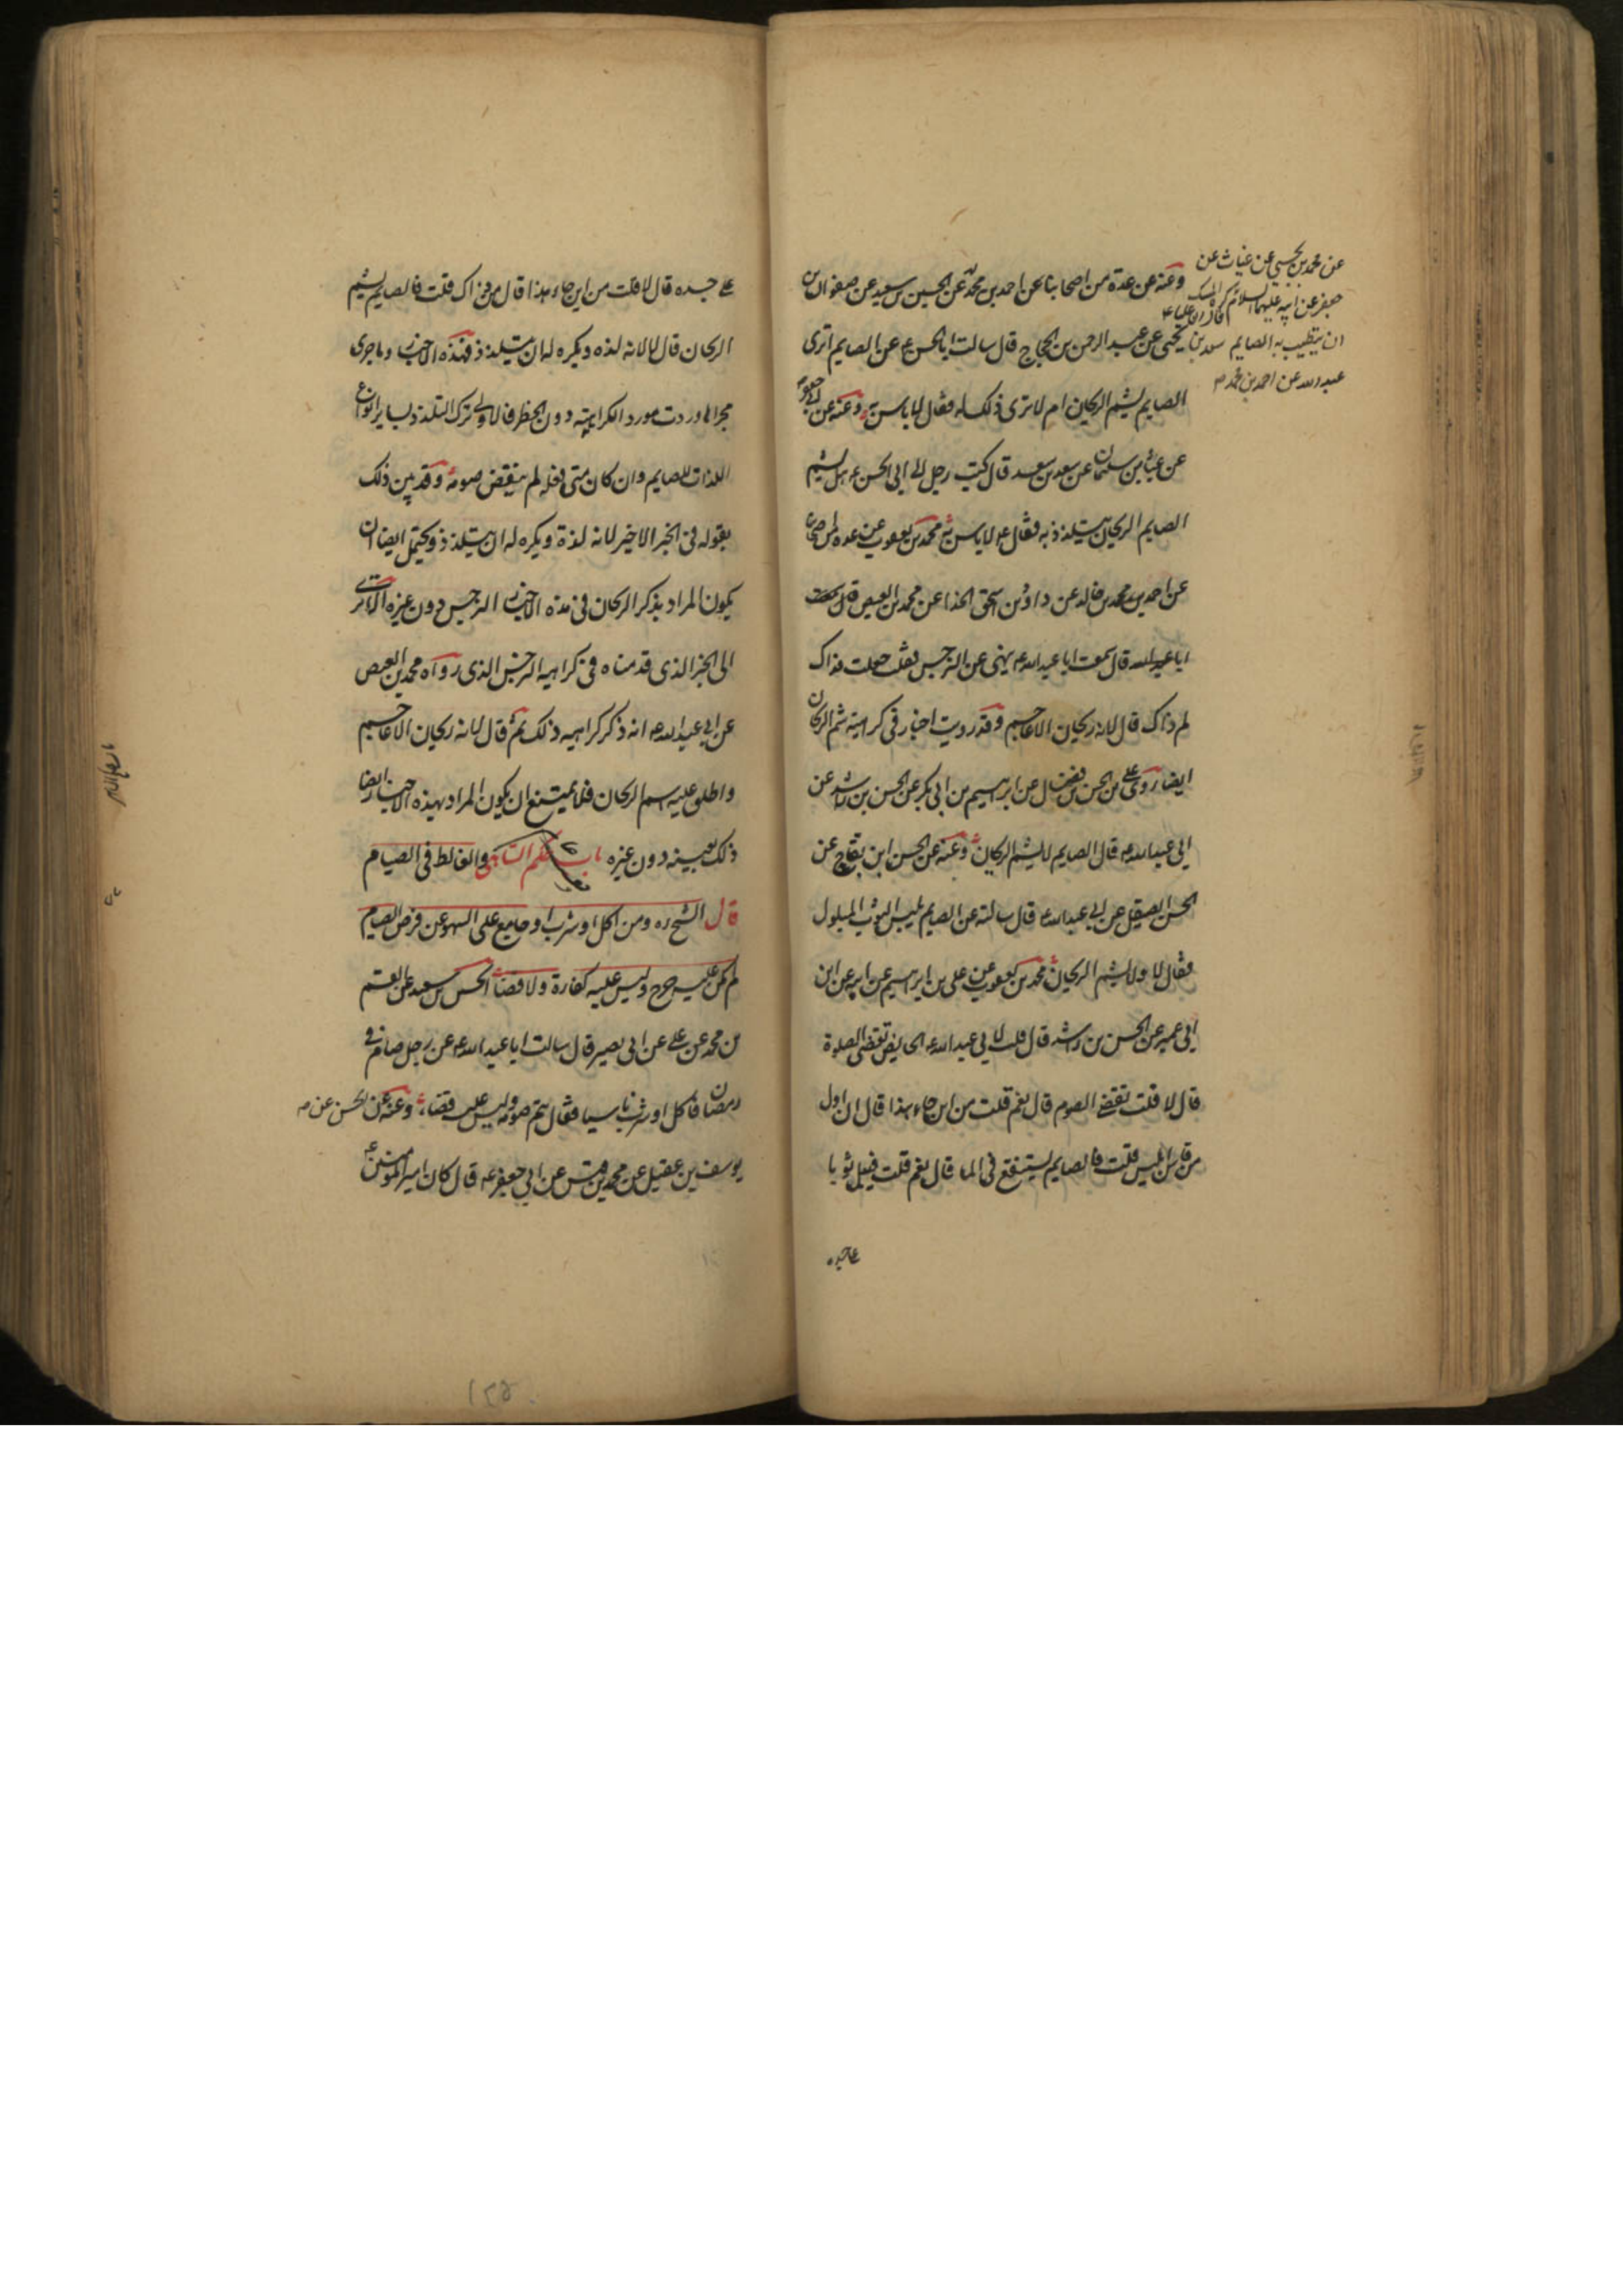 وعنه عن عدة من اصحابنا عن احمد بن محمد عن الحسين بن سعيد عن صفوان بن
يحيى عن عبد الرحمن بن الحجاج قال سالت ابا الحسن ع عن الصايم اترى
الصايم يشم الريحان ام لا ترى ذلك له فقال لا باس به وعنه عن ابي جعفر
عن عباس بن سليمان عن سعد بن سعد قال كتب رجل الى ابي الحسن ع هل يشم
الصايم الريحان يتلذذ به فقال ع لا باس به محمد بن يعقوب عن عدة من اصحابنا
عن احمد بن محمد بن خالد عن داود بن اسحق الحذا عن محمد بن العيص قال سمعت
ابا عبد الله قال سمعت ابا عبد الله ع ينهى عن النرجس فقلت جعلت فداك
لم ذاك قال لانه ريحان الاعاجم وقد رويت اخبار في كراهية شم الريحان
ايضا روى على بن الحسن بن فضال عن ابرهيم بن ابي بكر عن الحسن بن راشد عن
ابي عبد الله ع قال الصايم لا يشم الريحان وعنه عن الحسن ابن بقاح عن
الحسن الصيقل عن ابي عبد الله ع قال سالته عن الصايم يلبس الثوب المبلول
فقال لا ولا يشم الريحان محمد بن يعقوب عن على بن ابرهيم عن ابيه عن ابن
ابي عمير عن الحسن بن راشد قال قلت لابي عبد الله ع الحايض تقضى الصلوة
قال لا قلت تقضى الصوم قال نعم قلت من اين جاء هذا قال ان اول
من قاس ابليس قلت فالصايم يستنقع في الما قال نعم قلت فيبل ثوبا
على جسده
عن محمد بن يحيى عن غياث عن
جعفر عن ابيه عليهما السلام كره المسك
ان يتطيب به الصايم سعد بن
عبد الله عن احمد بن محمد
على جسده قال لا قلت من اين جاء هذا قال من ذاك قلت فالصايم يشم
الريحان قال لا لانه لذه ويكره له ان يتلذذ فهذه الاخبار وما جرى
مجراها وردت مورد الكراهية دون الحظر فالاولى ترك التلذذ بساير انواع
اللذات للصايم وان كان متى فعله لم ينقض صومه وقد بين ذلك
بقوله في الخبر الاخير لانه لذة ويكره له ان يتلذذ ويحتمل ايضا ان
يكون المراد بذكر الريحان في هذه الاخبار النرجس دون غيره الا ترى
الى الخبر الذى قدمناه في كراهية النرجس الذى رواه محمد بن العيص
عن ابي عبد الله ع انه ذكر كراهيه ذلك ثم قال لانه ريحان الاعاجم
واطلق عليه اسم الريحان فلا يمتنع ان يكون المراد بهذه الاخبار ايضا
ذلك بعينه دون غيره باب حكم الساهى والغالط في الصيام
قال الشيخ ره ومن اكل او شرب او جامع على السهو عن فرض الصيام
لم يكن عليه حرج وليس عليه كفارة ولا قضاء الحسين بن سعيد عن القسم
بن محمد عن على عن ابي بصير قال سالت ابا عبد الله ع عن رجل صام في
رمضان فاكل او شرب ناسيا فقال يتم صومه وليس عليه قضاء وعنه عن الحسن عن
يوسف بن عقيل عن محمد بن قيس عن ابي جعفر ع قال كان امير المومنين ع